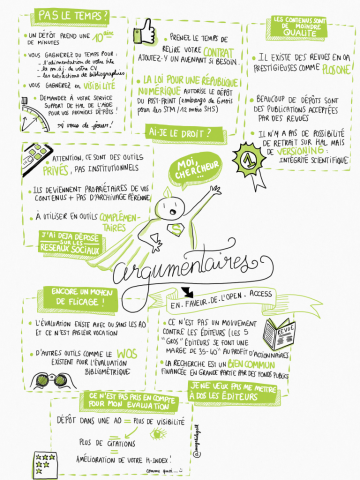 PAS LE TEMPS ?
UN DÉPÔT PREND UNE 10AINE
DE MINUTES
VOUS GAGNEREZ DU TEMPS POUR :
L'alimentation de votre site
la m.à.j. de votre CV
les extractions de bibliographies
VOUS GAGNEREZ en VISIBILITÉ
DEMANDEZ À VOTRE SERVICE
SUPPORT DE HAL DE L'AIDE
POUR VOS PREMIERS DÉPÔTS !
PRENEZ LE TEMPS DE
RELIRE VOTRE CONTRAT
AJOUTEZ-Y UN AVENANT SI BESOIN
LA LOI POUR UNE RÉPUBLIQUE
NUMÉRIQUE AUTORISE LE DÉPÔT
DU POST-PRINT (embargo de 6 mois
pour les STM / 12 mois SHS)
AI-JE LE DROIT ?
LES CONTENUS SONT
DE MOINDRE
QUALITÉ
IL EXISTE DES REVUES EN OA
PRESTIGIEUSES COMME PLOSONE
BEAUCOUP DE DÉPÔTS SONT
DES PUBLICATIONS ACCEPTÉES
PAR DES REVUES
IL N'Y A PAS DE POSSIBILITÉ
DE RETRAIT SUR HAL MAIS
DE VERSIONING :
INTÉGRITÉ SCIENTIFIQUE
ATTENTION, CE SONT DES OUTILS
PRIVÉS, PAS INSTITUTIONNELS
ILS DEVIENNENT PROPRIÉTAIRES DE VOS
CONTENUS + PAS D'ARCHIVAGE PÉRENNE
À UTILISER EN OUTILS COMPLÉMEN-
TAIRES
J'AI DÉJÀ DÉPOSÉ
SUR LES
RÉSEAUX SOCIAUX
MOI,
CHERCHEUR...
argumentaires
EN.FAVEUR.DE.L'OPEN.ACCESS
ENCORE UN MOYEN
DE FLICAGE !
L'ÉVALUATION EXISTE AVEC OU SANS LES AO
ET CE N'EST PAS LEUR VOCATION
D'AUTRES OUTILS COMME LE WOS
EXISTENT POUR L'ÉVALUATION
BIBLIOMÉTRIQUE
CE N'EST PAS UN MOUVEMENT
CONTRE LES ÉDITEURS (LES 5
"GROS" ÉDITEURS SE FONT UNE
MARGE DE 35-40% AU PROFIT D'ACTIONNAIRES)
LA RECHERCHE EST UN BIEN COMMUN
FINANCÉE EN GRANDE PARTIE PAR DES FONDS PUBLICS
REVUE
JE NE VEUX PAS ME METTRE
À DOS LES ÉDITEURS
CE N'EST PAS PRIS EN COMPTE
POUR MON ÉVALUATION
DÉPÔT DANS UNE AO = PLUS DE VISIBILITÉ
PLUS DE CITATIONS =
AMÉLIORATION DE VOTRE H-INDEX !